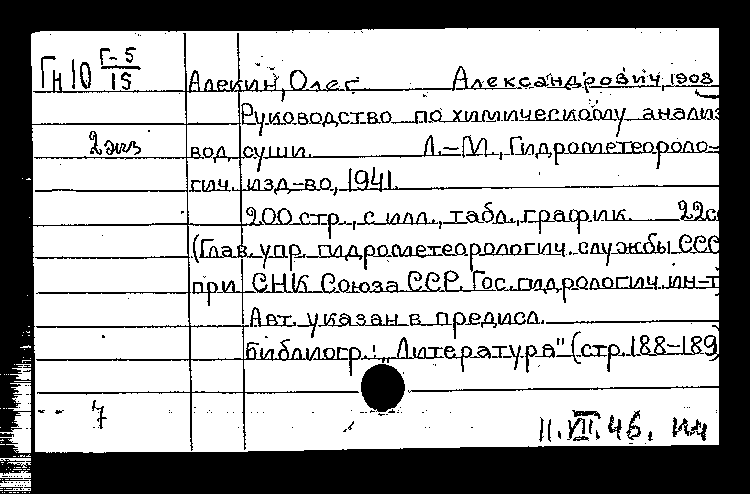 Гн10 Г-5/15
Алекин, Олег Александрович, 1908
Руководство по химическому анализ
2 экз
вод суши. Л.-М., Гидрометеороло-
гич. изд-во, 1941.
200 стр., с илл., табл., график. 22с
(Глав. упр. гидрометеорологич. службы ССС
при СНК Союза ССР. Гос. гидрологич. ин-т)
Авт. указан в предисл.
Библиогр.: „Литература" (стр. 188-189)
7
11.VII.46.